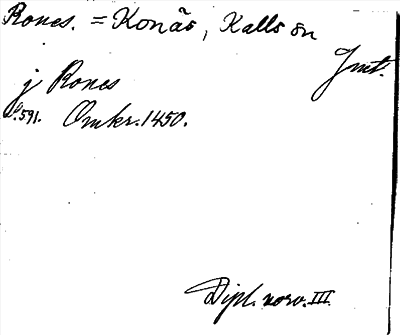 Rones. = Konäs, Kalls sn
Jmt.
j Rones
s. 591. Omkr. 1450.
Dipl. norv. III.